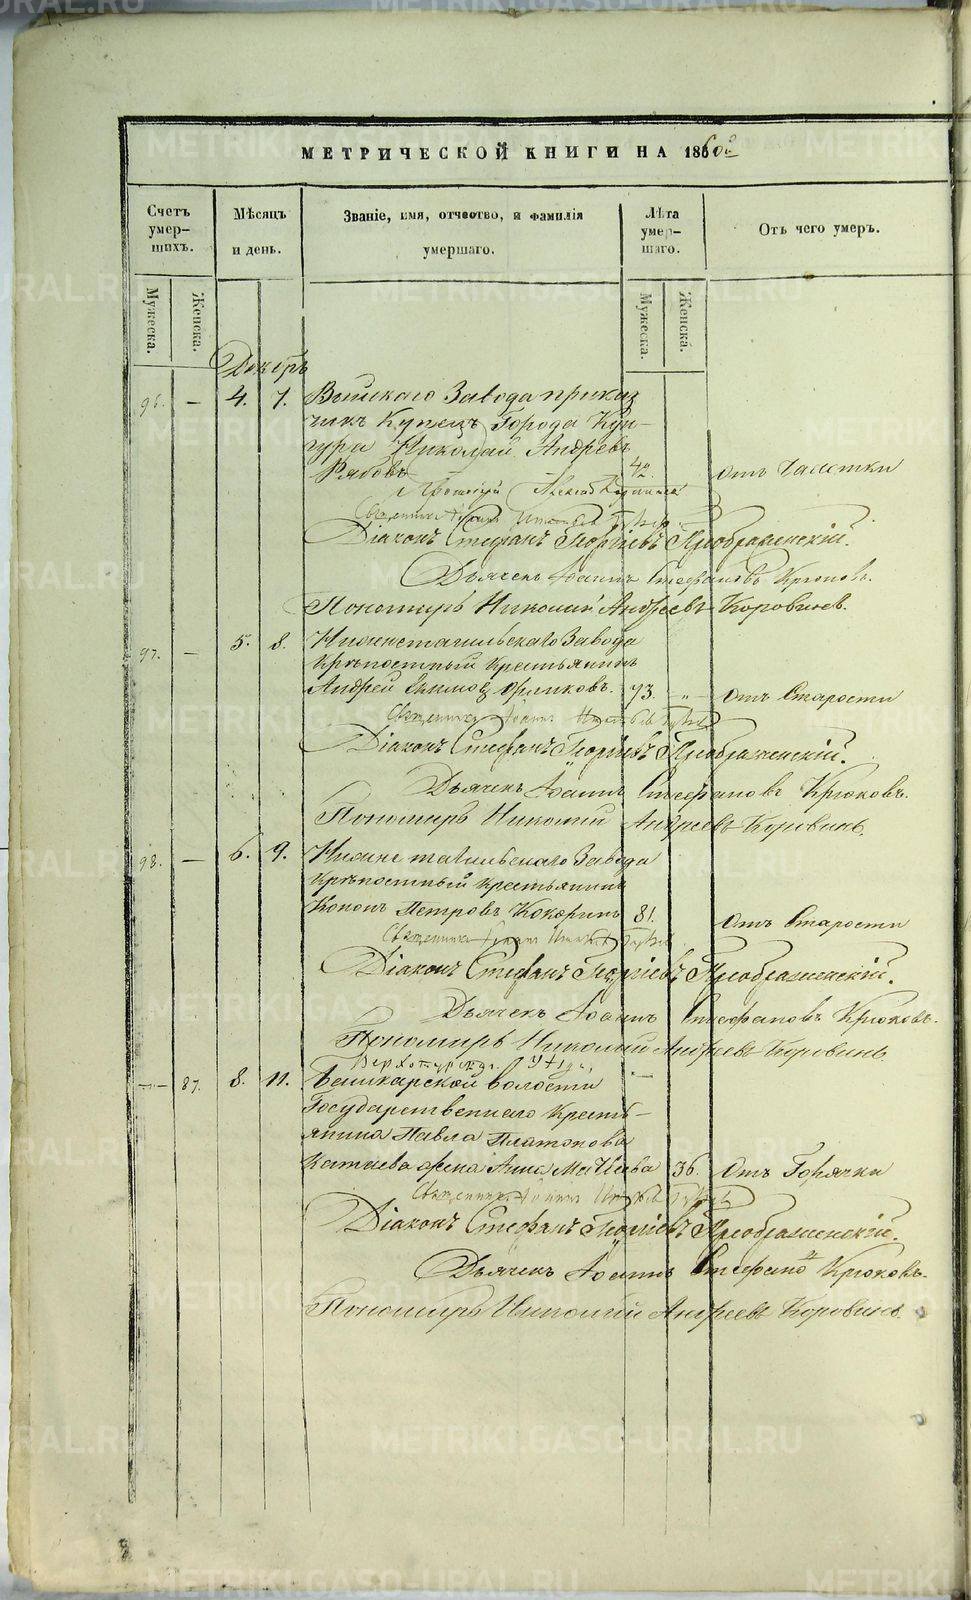 МЕТРИЧЕСКОЙ КНИГИ НА 1860й
Счетъ умер-шихъ.
Мѣсяцъ и день.
Званіе, имя, отчество, и фамилія умершаго.
Лѣта умер-шаго.
Отъ чего умеръ.
Мужеска.
Женска.
Мужеска.
Женска.
Декабрь
96. — 4. 7. Выйскаго Завода прикащ
чикъ Купецъ Города Кун-
гура Николай Андреевъ
Рябовъ 42. Отъ Чахотки
Протоіерей
Священникъ Іоаннъ
Діаконъ Стефанъ Георгіевъ Преображенскій.
Дьячекъ Іоаннъ Стефановъ Крюковъ.
Пономарь Николай Андреевъ Коровинъ.
97. — 5. 8. Нижнетагильскаго Завода
Крѣпостный Крестьянинъ
Андрей 73. " Отъ Старости
Священникъ Іоаннъ
Діаконъ Стефанъ Георгіевъ Преображенскій.
Дьячекъ Іоаннъ Стефановъ Крюковъ.
Пономарь Николай Андреевъ Коровинъ
98. — 6. 9. Нижне тагильскаго Завода
Крѣпостный Крестьянинъ
Кононъ Петровъ Кокоринъ 81. Отъ Старости
Священникъ Іоаннъ
Діаконъ Стефанъ Георгіевъ Преображенскій.
Дьячекъ Іоаннъ Стефановъ Крюковъ.
Пономарь Николай Андреевъ Коровинъ
Верхотурскаго
— 87. 8. 11. волости —
Государственнаго Кресть-
янина Павла Платонова
Катаева жена Анна Матвеева 36. Отъ Горячки
Священникъ Іоаннъ
Діаконъ Стефанъ Георгіевъ Преображенскій.
Дьячекъ Іоаннъ Стефановъ Крюковъ.
Пономарь Николай Андреевъ Коровинъ.
METRIKI.GASO-URAL.RU